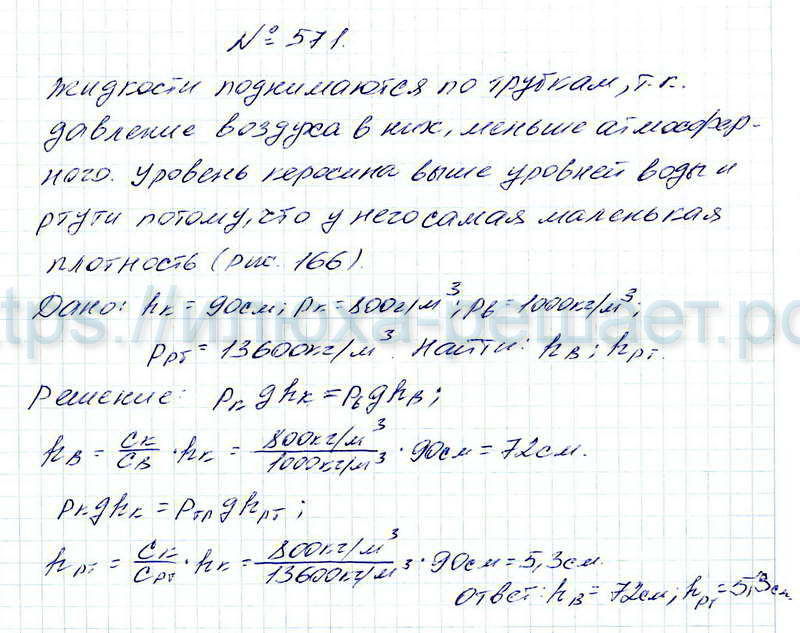 № 571.
Жидкости поднимаются по трубкам, т.к.
давление воздуха в них, меньше атмосфер-
ного. Уровень керосина выше уровней воды и
ртути потому, что у него самая маленькая
плотность (рис. 166).
Дано: hк = 90см; ρк = 800г/м³; ρв = 1000кг/м³;
ttps://илюха-решает.рф
ρрт = 13600кг/м³. Найти: hв; hрт.
Решение: ρкghк = ρвghв;
hв = Cк/Cв · hк = 800кг/м³/1000кг/м³ · 90см = 72см.
ρкghк = ртрghрт;
hрт = Cк/Cрт · hк = 800кг/м³/13600кг/м³ · 90см = 5,3см.
Ответ: hв = 72см; hрт = 5,3см.